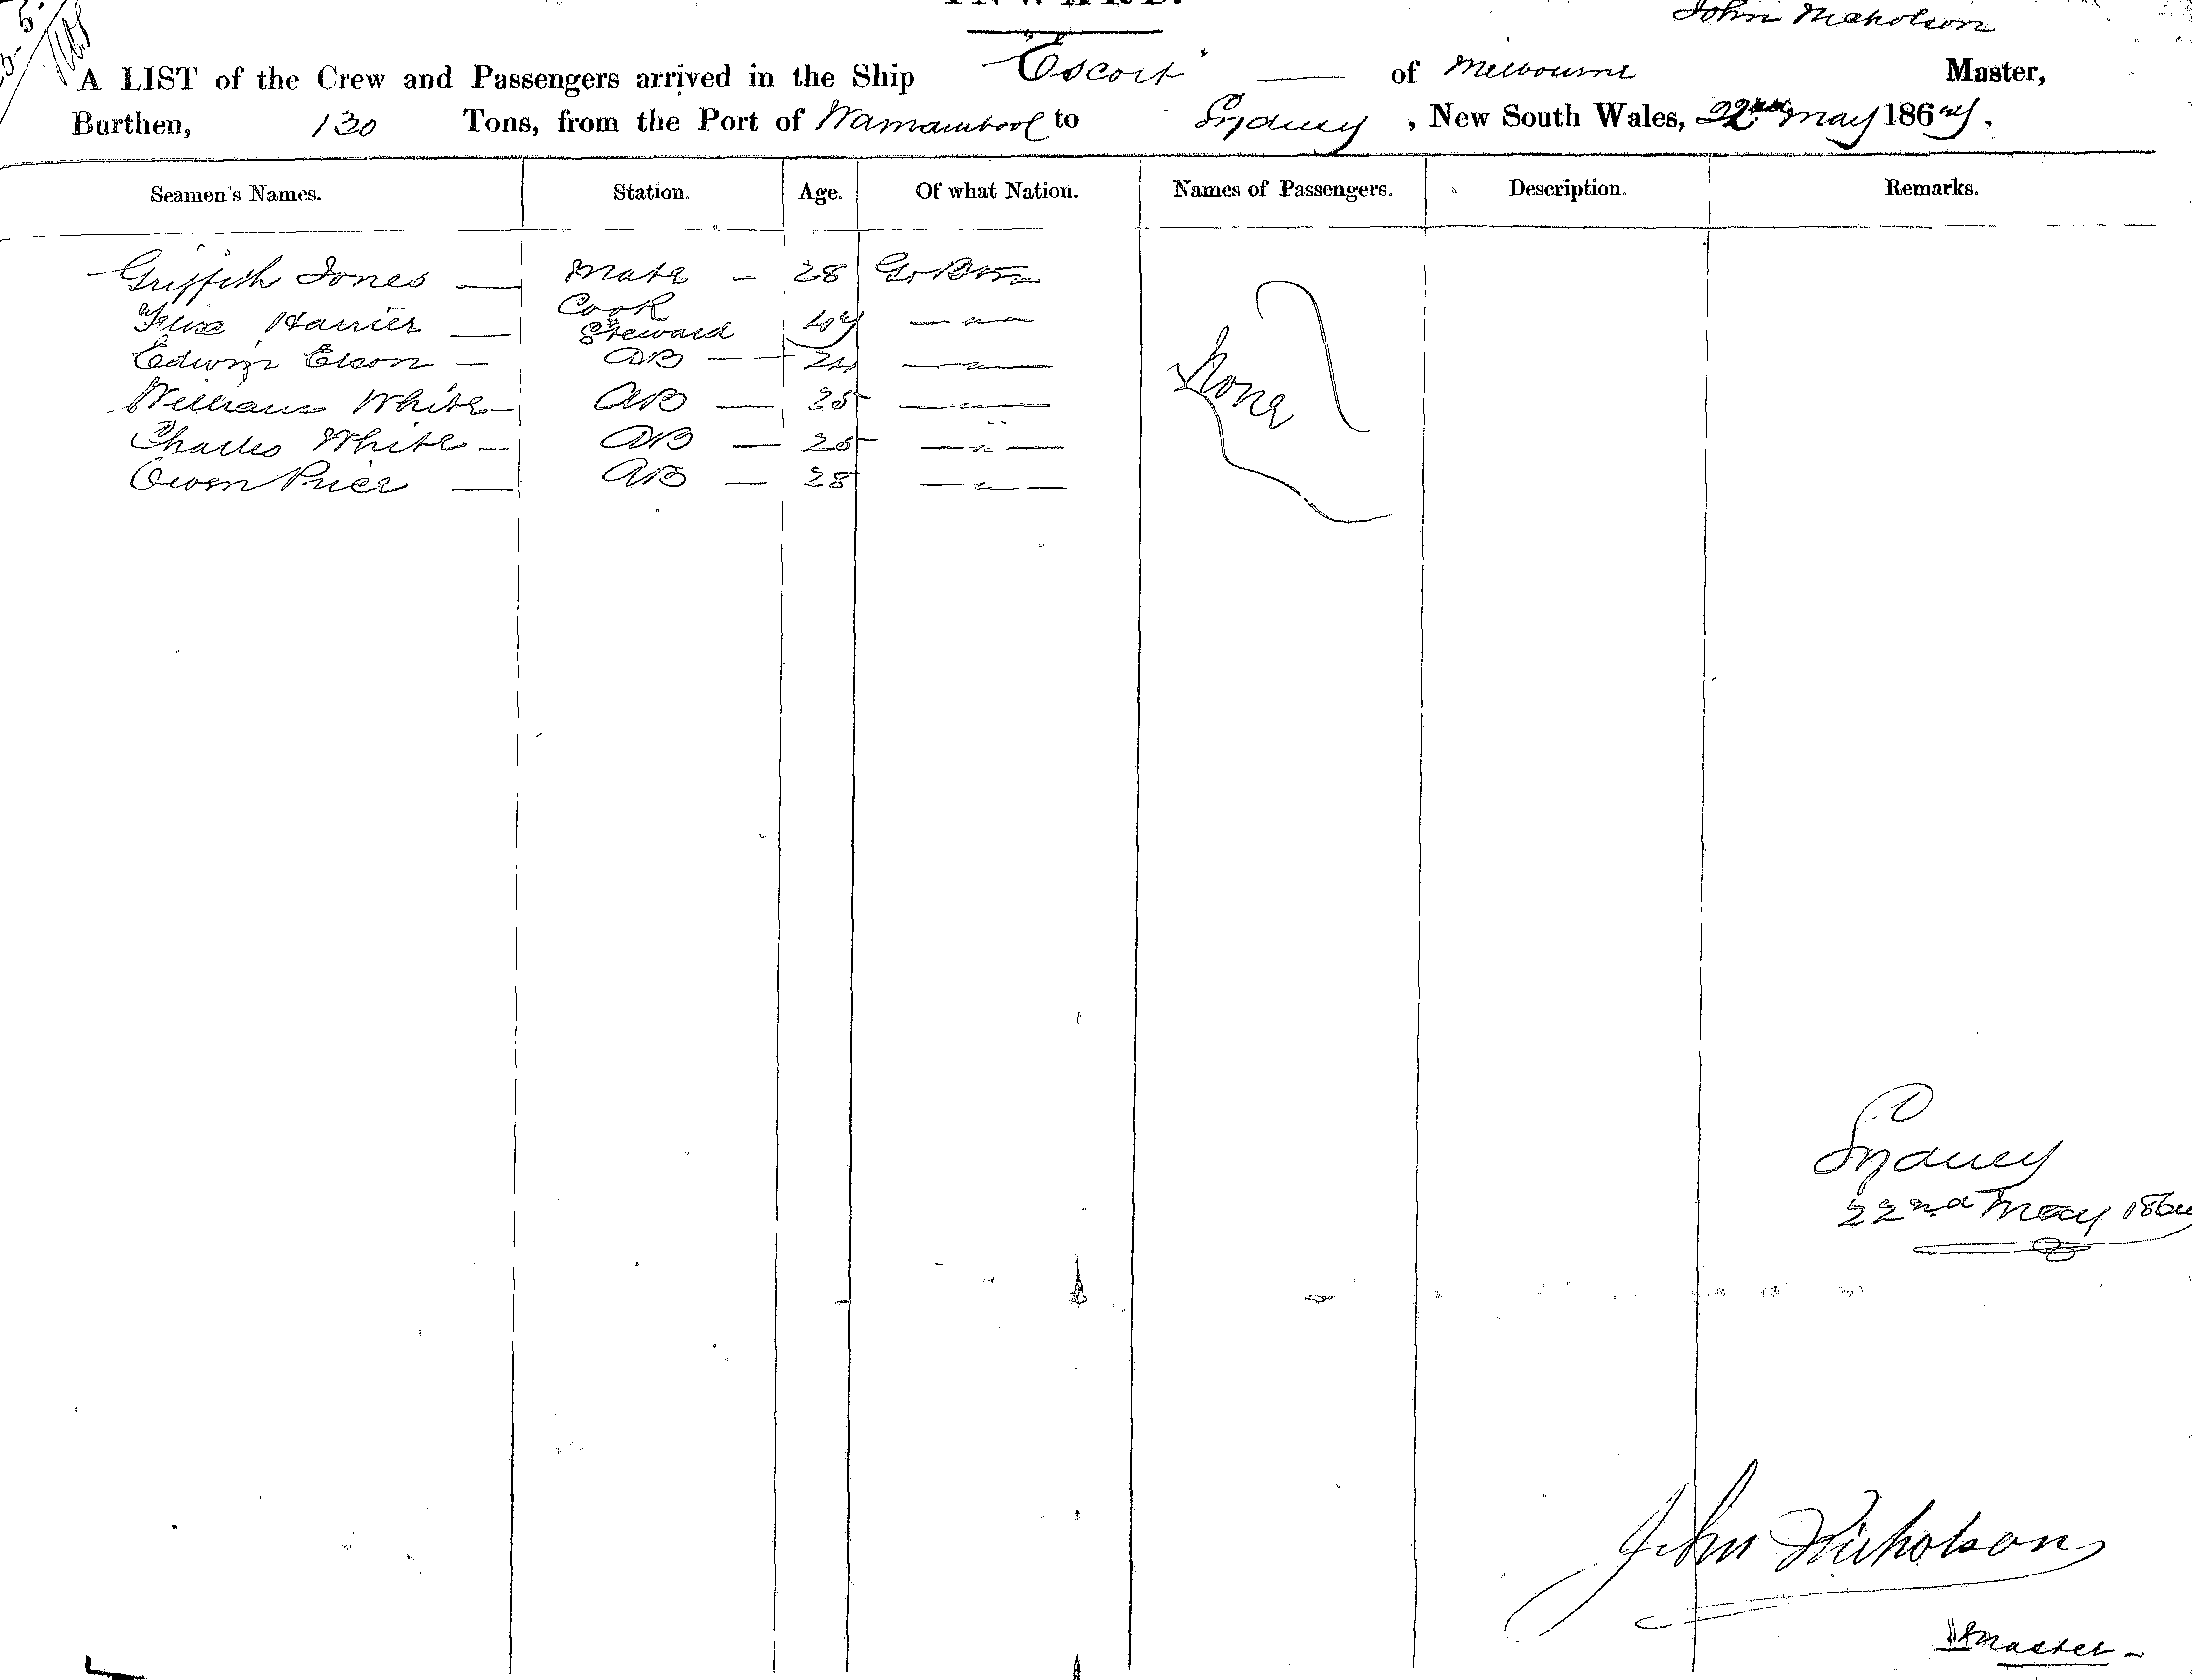 INWARD.
John Nicholson
A LIST of the Crew and Passengers arrived in the Ship "Escort" — of Melbourne Master,
Burthen, 130 Tons, from the Port of Warnambool to Sydney, New South Wales, 22nd May 186
Seamen's Names. Station. Age. Of what Nation. Names of Passengers. Description. Remarks.
Griffith Jones — Mate — 28 Gt Bttn
Harrier — Cook
Steward — " —
Edwin Elson — AB — 24 — " —
William White — AB — 25 — " —
Charles White — AB — 25 — " —
Owen Price — AB — 28 — " —
None
Sydney
22nd May 186
John Nicholson
Master —